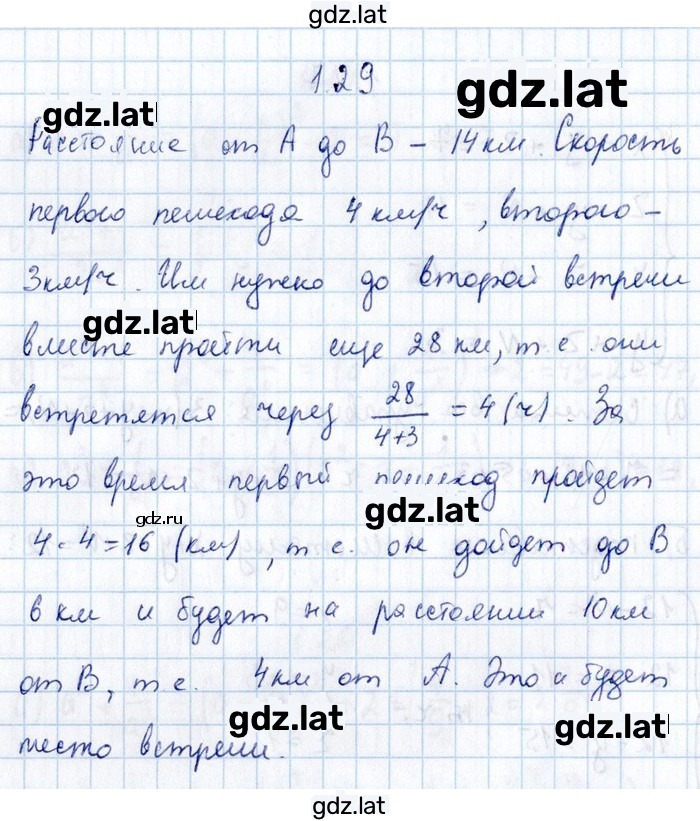 gdz.lat
1.29
gdz.lat
gdz.lat
Расстояние от А до В – 14 км. Скорость
первого пешехода 4 км/ч, второго –
3 км/ч. Им нужно до второй встречи
gdz.lat
вместе пройти еще 28 км, т. е. они
встретятся через 28/4+3 = 4 (ч). За
это время первый пешеход пройдет
gdz.lat
gdz.ru
4 · 4 = 16 (км), т. е. он дойдет до В
6 км и будет на расстоянии 10 км
от В, т. е. 4 км от А. Это и будет
gdz.lat
gdz.lat
место встречи.
gdz.lat